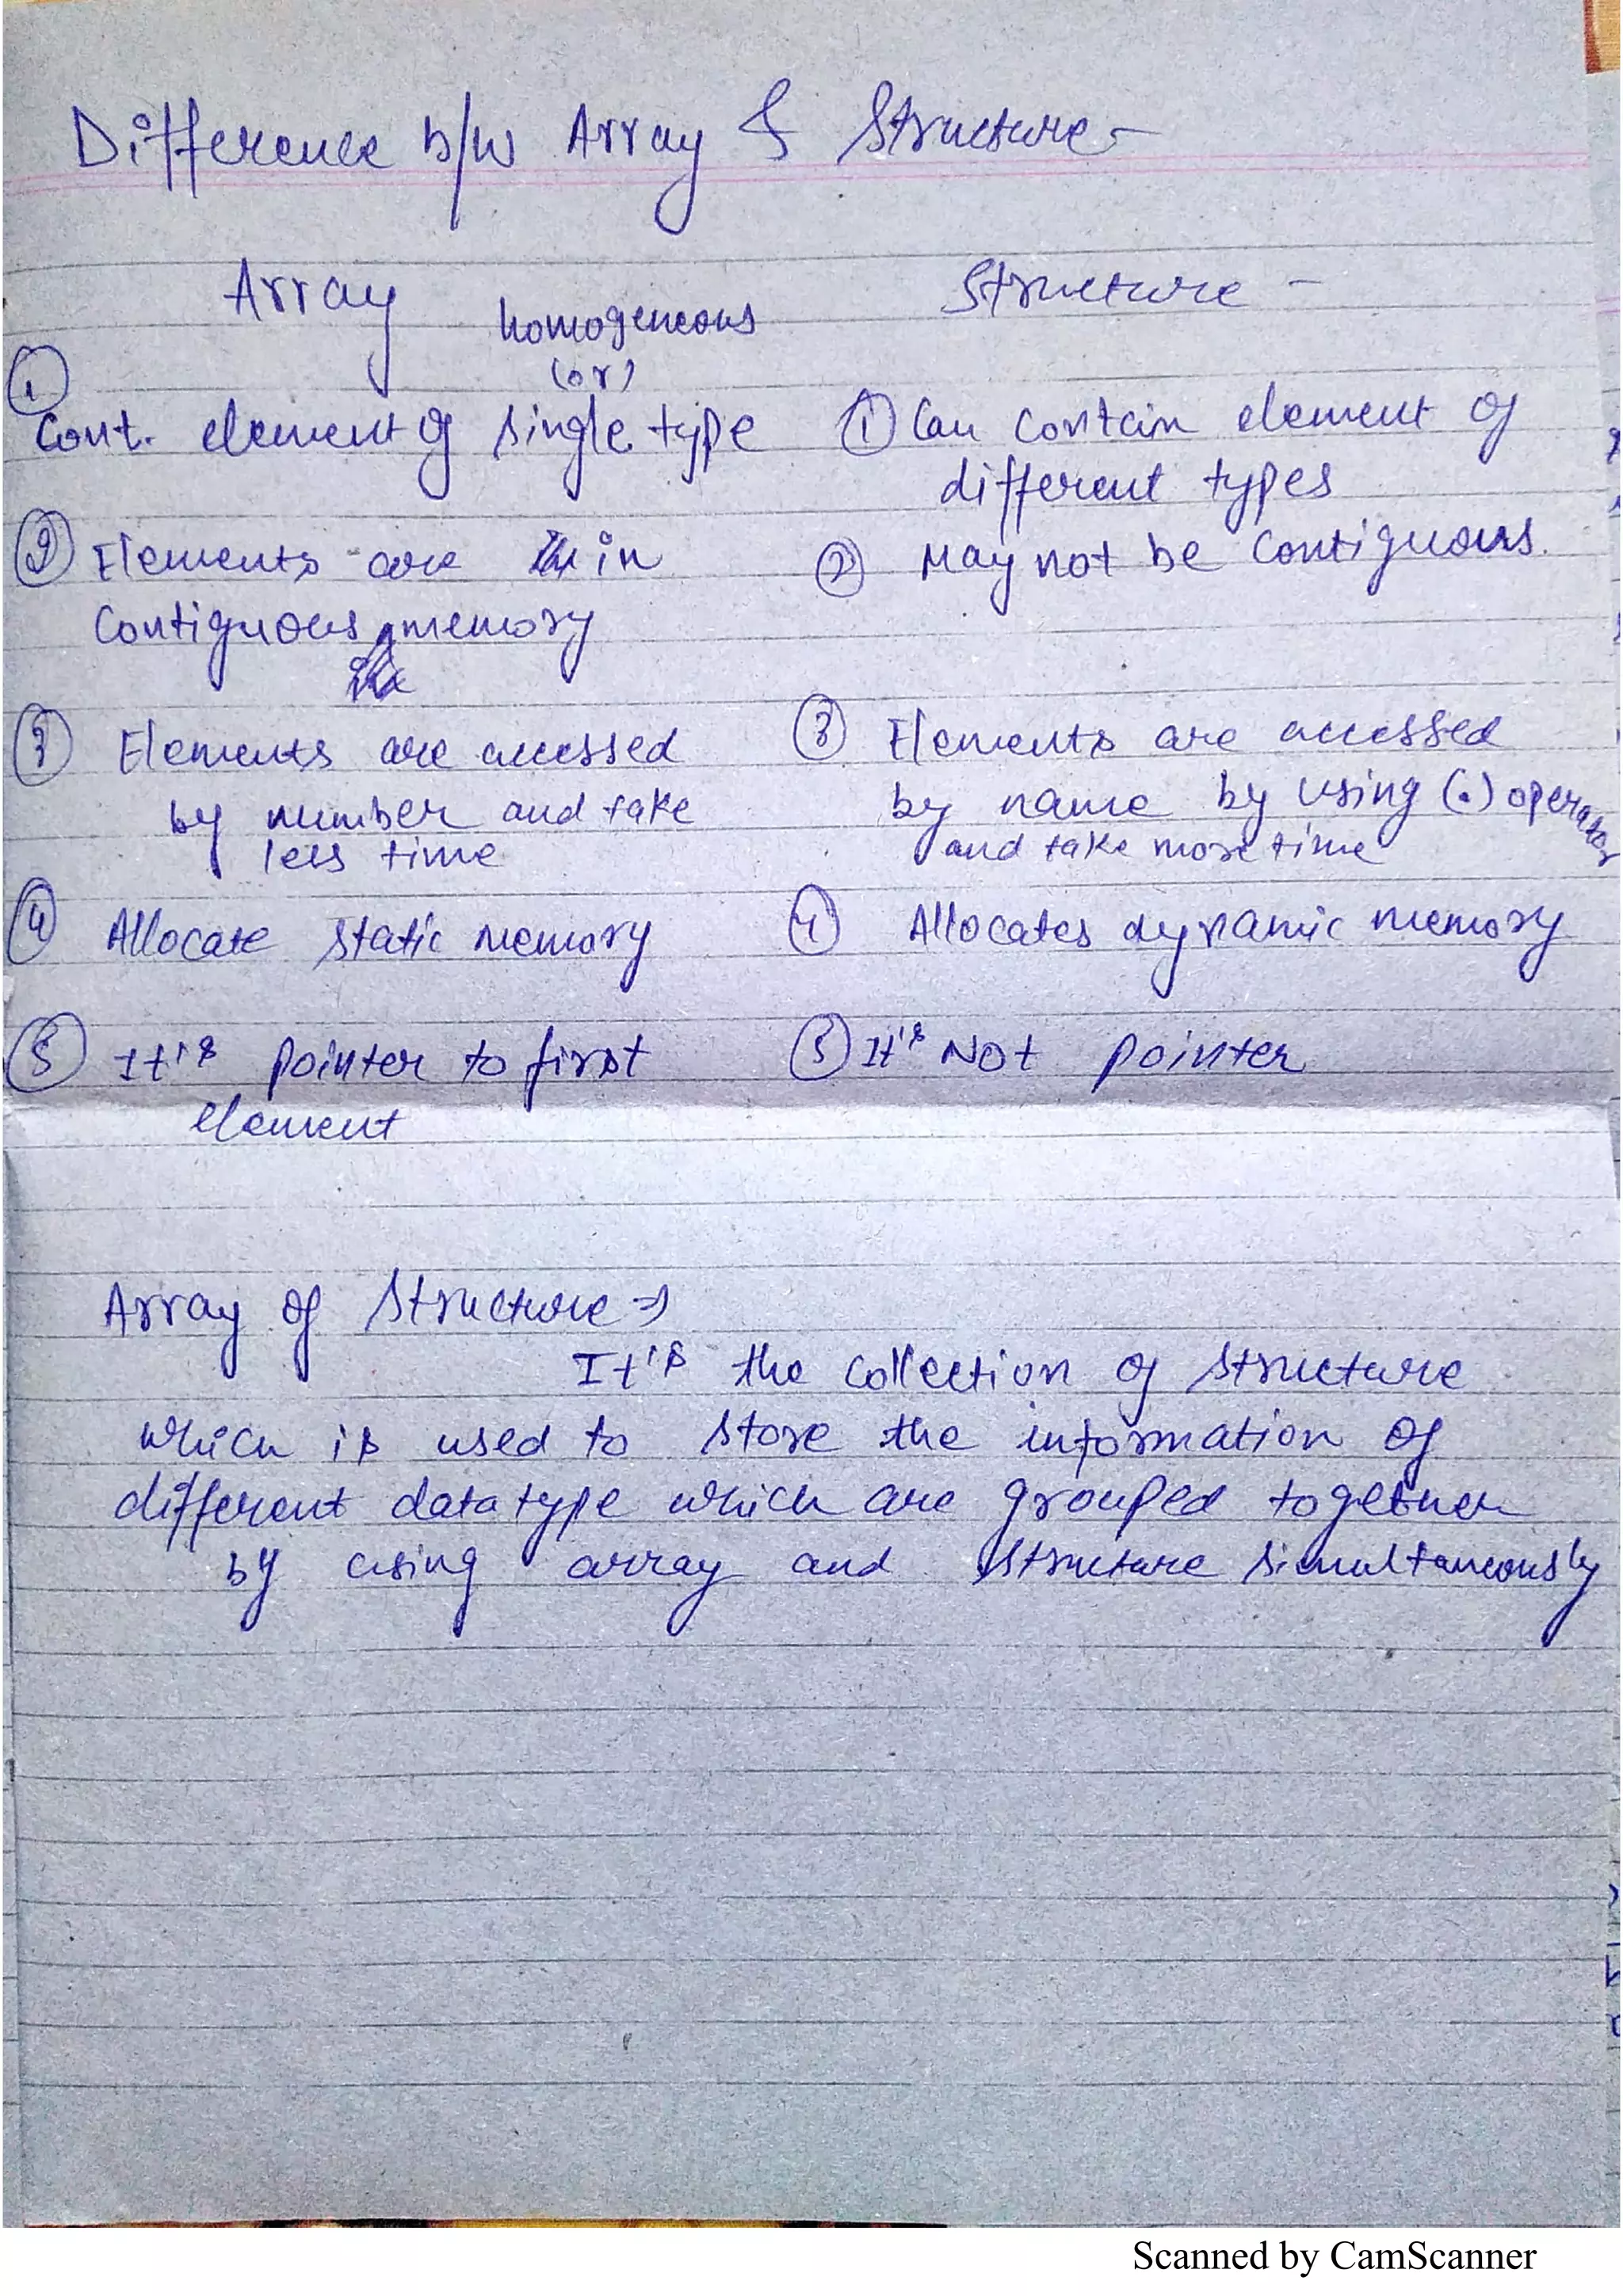 Difference b/w Array & Structure -
Array
homogeneous
(or)
① Cont. element of single type
② Elements are in
Contiguous memory
③ Elements are accessed
by number and take
less time
④ Allocate static memory
⑤ It's pointer to first
element
Structure -
① Can contain element of
different types
② May not be Contiguous.
③ Elements are accessed
by name by using (.) operator
and take more time
④ Allocates dynamic memory
⑤ It's Not pointer
Array of Structure ⇒
It's the collection of structure
which is used to store the information of
different datatype which are grouped together
by using array and structure simultaneously
Scanned by CamScanner